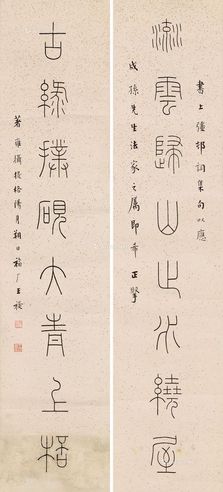 流雲歸山止水繞屋
書上彊邨詞集句以應
成孫先生法家之屬即希正擘
古綠撲硯大青上梧
著雍攝提格月朔日福厂王禔